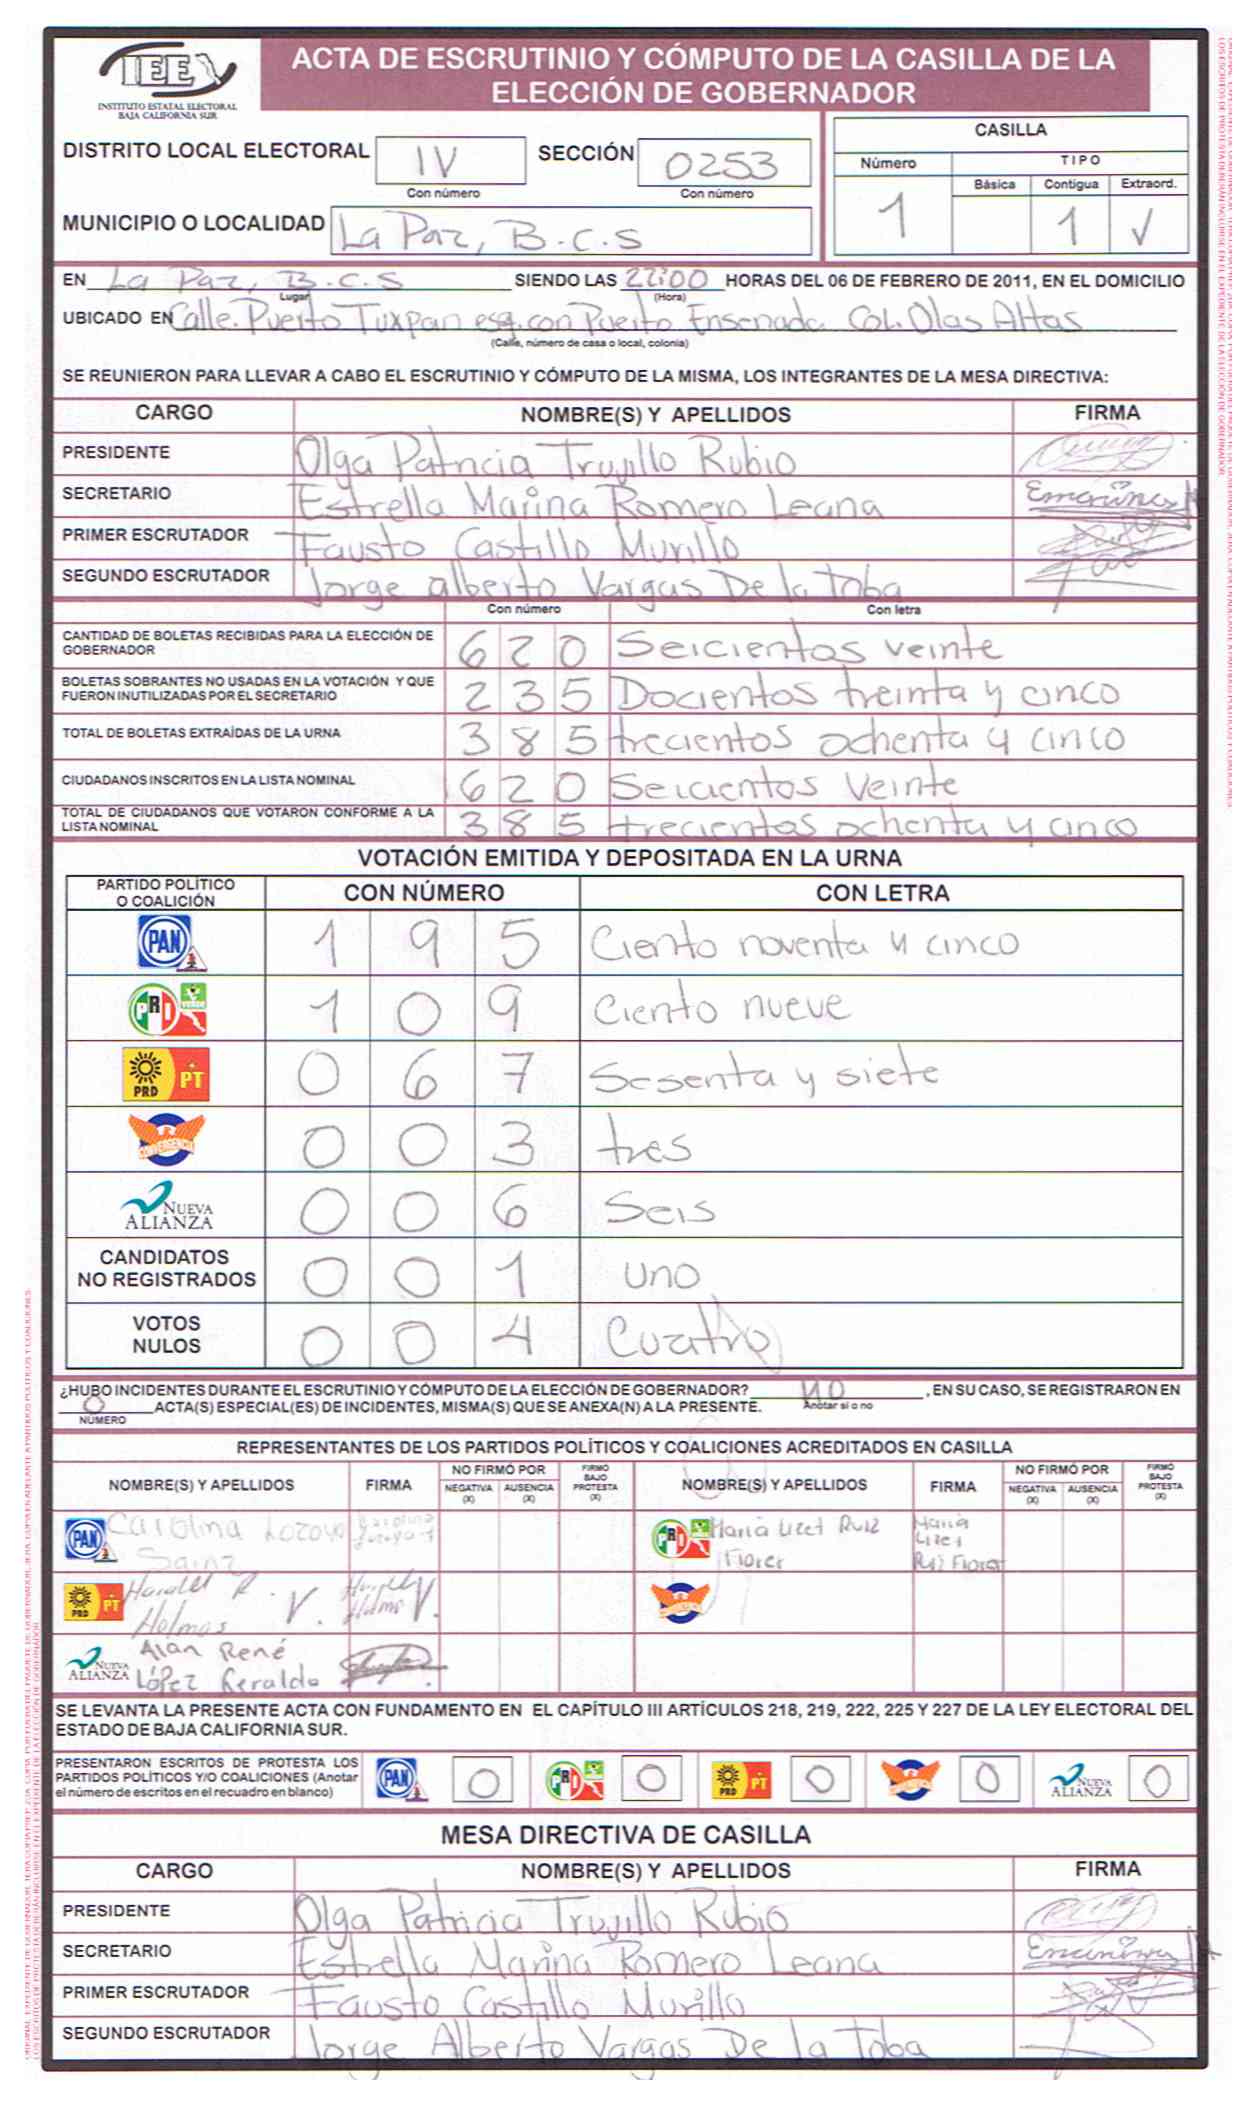 IEE
INSTITUTO ESTATAL ELECTORAL
BAJA CALIFORNIA SUR
ACTA DE ESCRUTINIO Y CÓMPUTO DE LA CASILLA DE LA
ELECCIÓN DE GOBERNADOR
DISTRITO LOCAL ELECTORAL IV SECCIÓN 0253
Con número Con número
MUNICIPIO O LOCALIDAD La Paz, B.C.S
CASILLA
Número TIPO
Básica Contigua Extraord.
1 1 √
EN La Paz, B.C.S SIENDO LAS 22:00 HORAS DEL 06 DE FEBRERO DE 2011, EN EL DOMICILIO
Lugar (Hora)
UBICADO EN Calle. Puerto Tuxpan esq. con Puerto Ensenada Col. Olas Altas
(Calle, número de casa o local, colonia)
SE REUNIERON PARA LLEVAR A CABO EL ESCRUTINIO Y CÓMPUTO DE LA MISMA, LOS INTEGRANTES DE LA MESA DIRECTIVA:
CARGO NOMBRE(S) Y APELLIDOS FIRMA
PRESIDENTE Olga Patricia Trujillo Rubio
SECRETARIO Estrella Marina Romero Leana
PRIMER ESCRUTADOR Fausto Castillo Murillo
SEGUNDO ESCRUTADOR Jorge alberto Vargas De la Toba
Con número Con letra
CANTIDAD DE BOLETAS RECIBIDAS PARA LA ELECCIÓN DE
GOBERNADOR 620 Seicientos veinte
BOLETAS SOBRANTES NO USADAS EN LA VOTACIÓN Y QUE
FUERON INUTILIZADAS POR EL SECRETARIO 235 Docientos treinta y cinco
TOTAL DE BOLETAS EXTRAÍDAS DE LA URNA 385 trecientos ochenta y cinco
CIUDADANOS INSCRITOS EN LA LISTA NOMINAL 620 Seicientos Veinte
TOTAL DE CIUDADANOS QUE VOTARON CONFORME A LA
LISTA NOMINAL 385 trecientos ochenta y cinco
VOTACIÓN EMITIDA Y DEPOSITADA EN LA URNA
PARTIDO POLÍTICO
O COALICIÓN CON NÚMERO CON LETRA
PAN 1 9 5 Ciento noventa y cinco
PRI VERDE 1 0 9 Ciento nueve
PRD PT 0 6 7 Sesenta y siete
CONVERGENCIA 0 0 3 tres
NUEVA ALIANZA 0 0 6 Seis
CANDIDATOS
NO REGISTRADOS 0 0 1 uno
VOTOS
NULOS 0 0 4 Cuatro
¿HUBO INCIDENTES DURANTE EL ESCRUTINIO Y CÓMPUTO DE LA ELECCIÓN DE GOBERNADOR? NO , EN SU CASO, SE REGISTRARON EN
0 ACTA(S) ESPECIAL(ES) DE INCIDENTES, MISMA(S) QUE SE ANEXA(N) A LA PRESENTE. Anotar si o no
NÚMERO
REPRESENTANTES DE LOS PARTIDOS POLÍTICOS Y COALICIONES ACREDITADOS EN CASILLA
NOMBRE(S) Y APELLIDOS FIRMA NO FIRMÓ POR NEGATIVA (X) AUSENCIA (X) FIRMÓ BAJO PROTESTA (X) NOMBRE(S) Y APELLIDOS FIRMA NO FIRMÓ POR NEGATIVA (X) AUSENCIA (X) FIRMÓ BAJO PROTESTA (X)
PAN Carolina Lozoya Sainz
PRI María Lizet Ruiz Flores María Lizet Ruiz Flores
PRD PT Harold R. V. Holmos
NUEVA ALIANZA Alan René López Geraldo
SE LEVANTA LA PRESENTE ACTA CON FUNDAMENTO EN EL CAPÍTULO III ARTÍCULOS 218, 219, 222, 225 Y 227 DE LA LEY ELECTORAL DEL
ESTADO DE BAJA CALIFORNIA SUR.
PRESENTARON ESCRITOS DE PROTESTA LOS
PARTIDOS POLÍTICOS Y/O COALICIONES (Anotar
el número de escritos en el recuadro en blanco) PAN 0 PRI 0 PRD PT 0 0 NUEVA ALIANZA 0
MESA DIRECTIVA DE CASILLA
CARGO NOMBRE(S) Y APELLIDOS FIRMA
PRESIDENTE Olga Patricia Trujillo Rubio
SECRETARIO Estrella Marina Romero Leana
PRIMER ESCRUTADOR Fausto Castillo Murillo
SEGUNDO ESCRUTADOR Jorge Alberto Vargas De la Toba